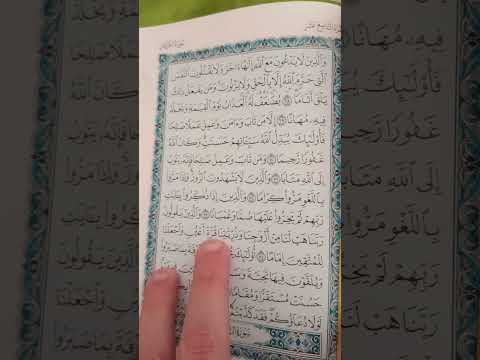 سُورَةُ الفُرْقَانِ
وَالَّذِينَ لَا يَدْعُونَ مَعَ اللَّهِ إِلَٰهًا ءَاخَرَ وَلَا يَقْتُلُونَ النَّفْسَ
الَّتِي حَرَّمَ اللَّهُ إِلَّا بِالْحَقِّ وَلَا يَزْنُونَ وَمَن يَفْعَلْ ذَٰلِكَ
يَلْقَ أَثَامًا ٦٨ يُضَٰعَفْ لَهُ الْعَذَابُ يَوْمَ الْقِيَٰمَةِ وَيَخْلُدْ
فِيهِ مُهَانًا ٦٩ إِلَّا مَن تَابَ وَءَامَنَ وَعَمِلَ عَمَلًا صَٰلِحًا
فَأُولَٰئِكَ يُبَدِّلُ اللَّهُ سَيِّئَاتِهِمْ حَسَنَٰتٍ وَكَانَ اللَّهُ
غَفُورًا رَّحِيمًا ٧٠ وَمَن تَابَ وَعَمِلَ صَٰلِحًا فَإِنَّهُ يَتُوبُ
إِلَى اللَّهِ مَتَابًا ٧١ وَالَّذِينَ لَا يَشْهَدُونَ الزُّورَ وَإِذَا مَرُّوا
بِاللَّغْوِ مَرُّوا كِرَامًا ٧٢ وَالَّذِينَ إِذَا ذُكِّرُوا بِـَٔايَٰتِ
رَبِّهِمْ لَمْ يَخِرُّوا عَلَيْهَا صُمًّا وَعُمْيَانًا ٧٣ وَالَّذِينَ يَقُولُونَ
رَبَّنَا هَبْ لَنَا مِنْ أَزْوَٰجِنَا وَذُرِّيَّٰتِنَا قُرَّةَ أَعْيُنٍ وَاجْعَلْنَا
لِلْمُتَّقِينَ إِمَامًا ٧٤ أُولَٰئِكَ بِمَا صَبَرُوا
وَيُلَقَّوْنَ فِيهَا تَحِيَّةً وَسَلَٰمًا
حَسُنَتْ مُسْتَقَرًّا وَمُقَامًا
لَوْلَا دُعَاؤُكُمْ فَقَدْ كَذَّبْتُمْ
سُورَةُ